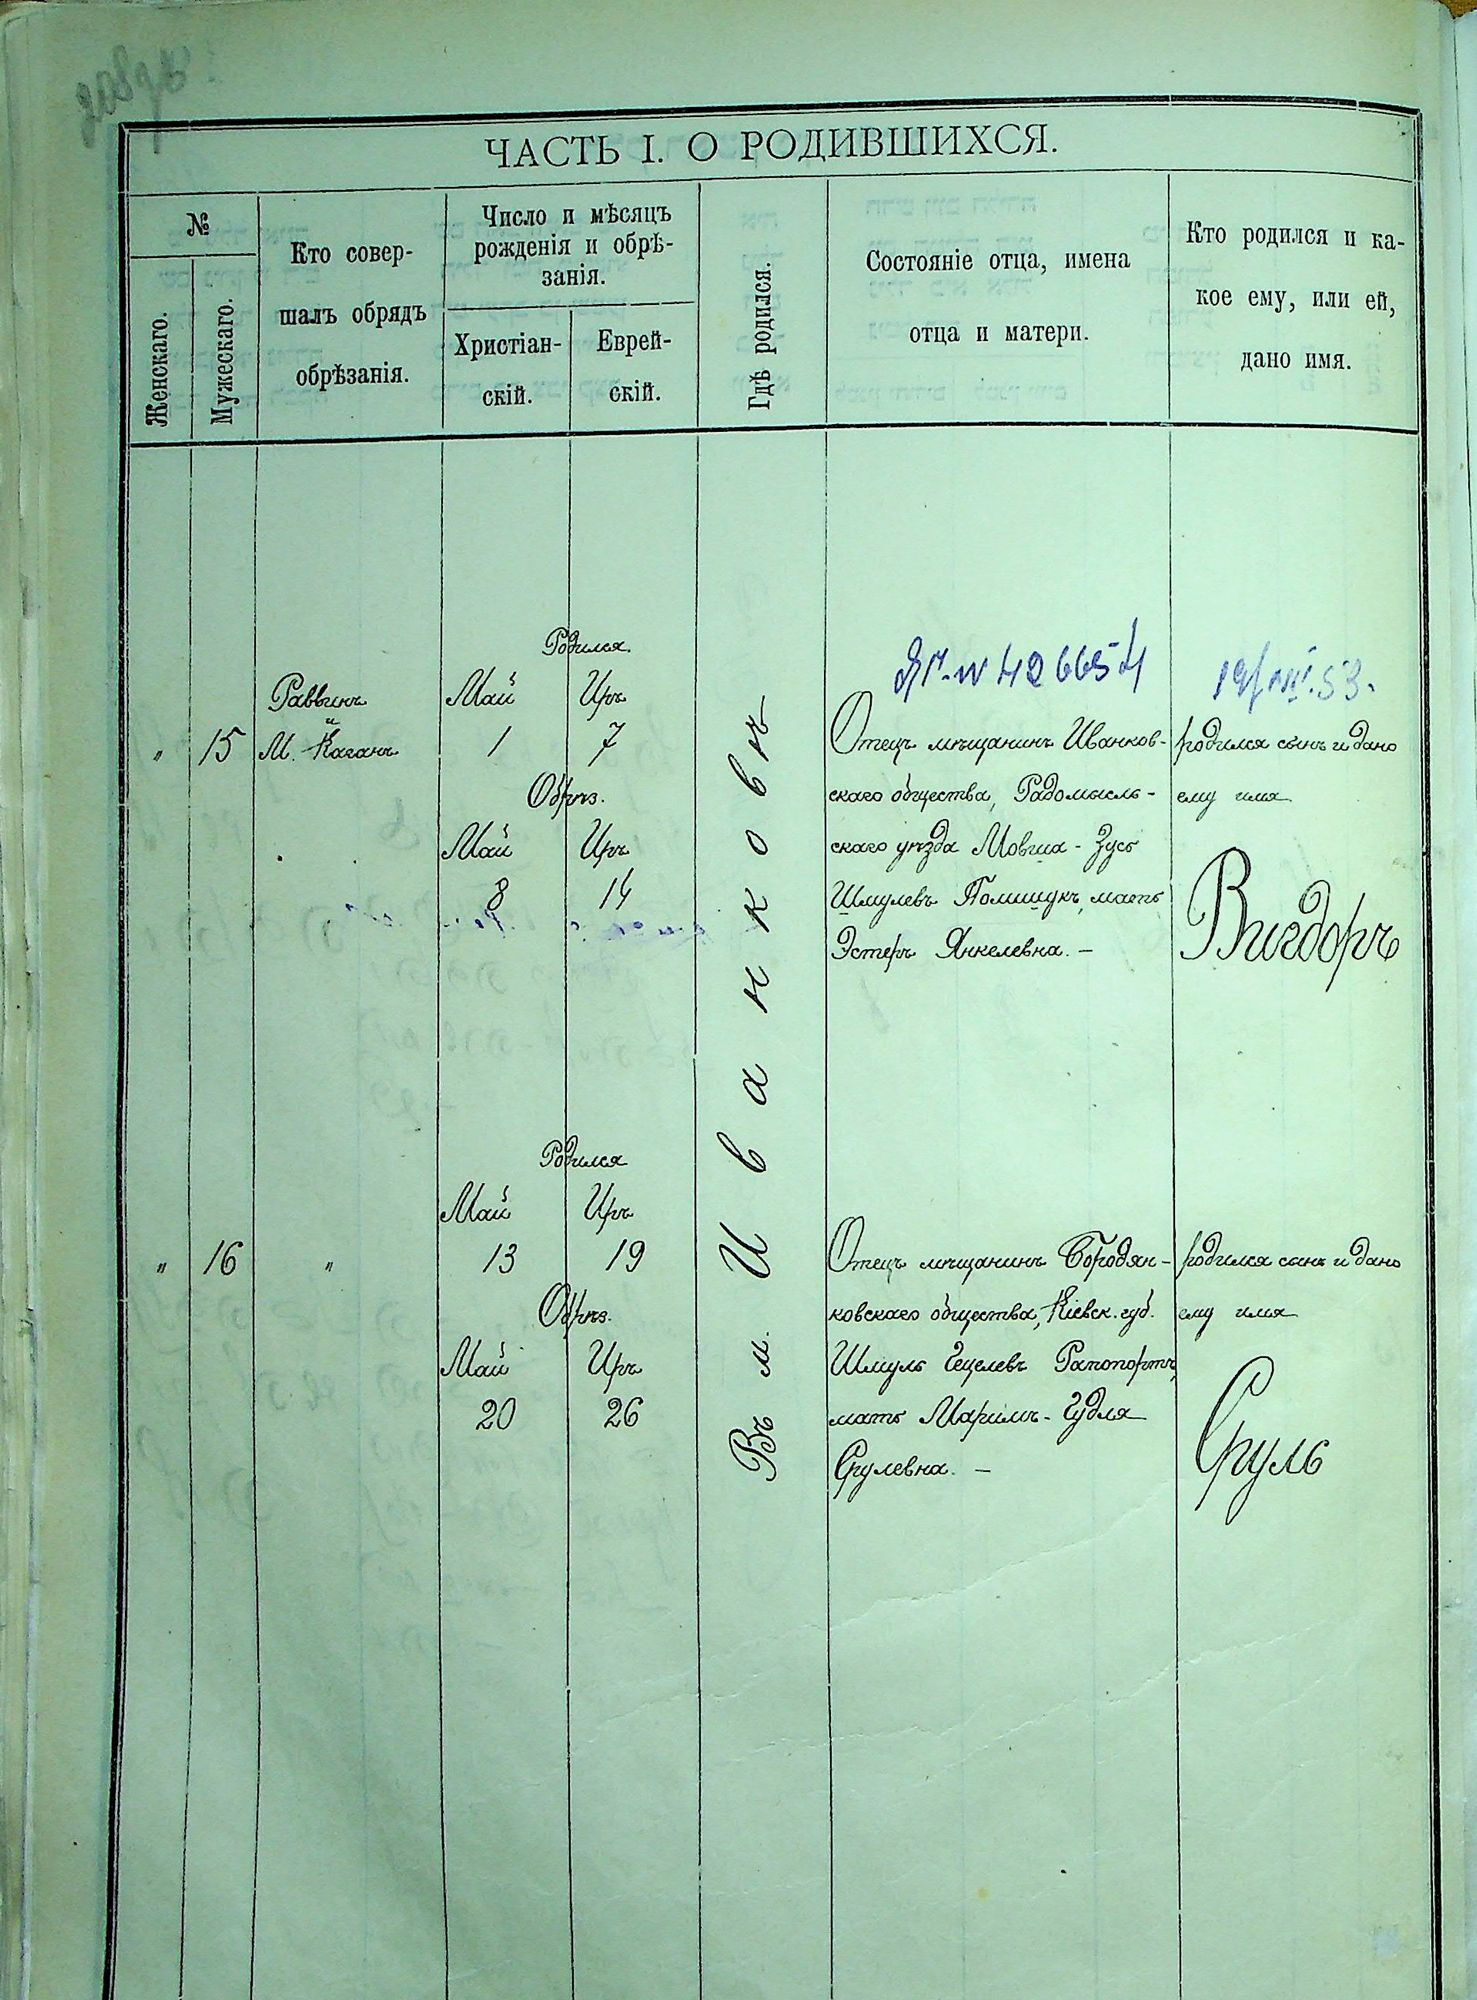 ЧАСТЬ I. О РОДИВШИХСЯ.
№
Женскаго.
Мужескаго.
Кто совер-
шалъ обрядъ
обрѣзанія.
Число и мѣсяцъ
рожденія и обрѣ-
занія.
Христіан-
скій.
Еврей-
скій.
Гдѣ родился.
Состояніе отца, имена
отца и матери.
Кто родился и ка-
кое ему, или ей,
дано имя.
Въ м. Иванковѣ
" 15
Раввинъ
и
М. Каганъ
Родился
Май Иръ
1 7
Обрѣз.
Май Иръ
8 14
426654
Отецъ мѣщанинъ Иванков-
скаго общества, Радомысль-
скаго уѣзда Мовша - Зусь
Шмулевъ Полищукъ, мать
Эстеръ Янкелевна. —
19/VIII.53.
родился сынъ и дано
ему имя
Вигдоръ
" 16
"
Родился
Май Иръ
13 19
Обрѣз.
Май Иръ
20 26
Отецъ мѣщанинъ Бородян-
ковскаго общества, Кіевск. губ.
Шмуль Гецелевъ Рапопортъ,
мать Маримъ - Гудля
Срулевна. —
родился сынъ и дано
ему имя
Сруль